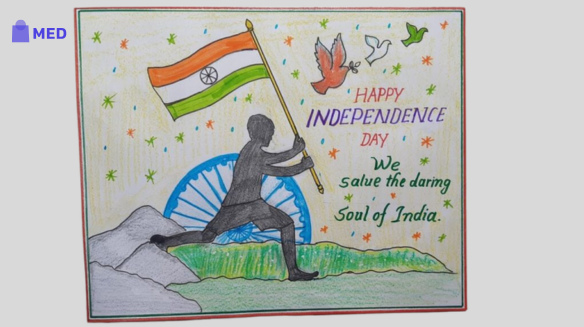 MED
HAPPY
INDEPENDENCE
DAY
We
salue the daring
Soul of India.